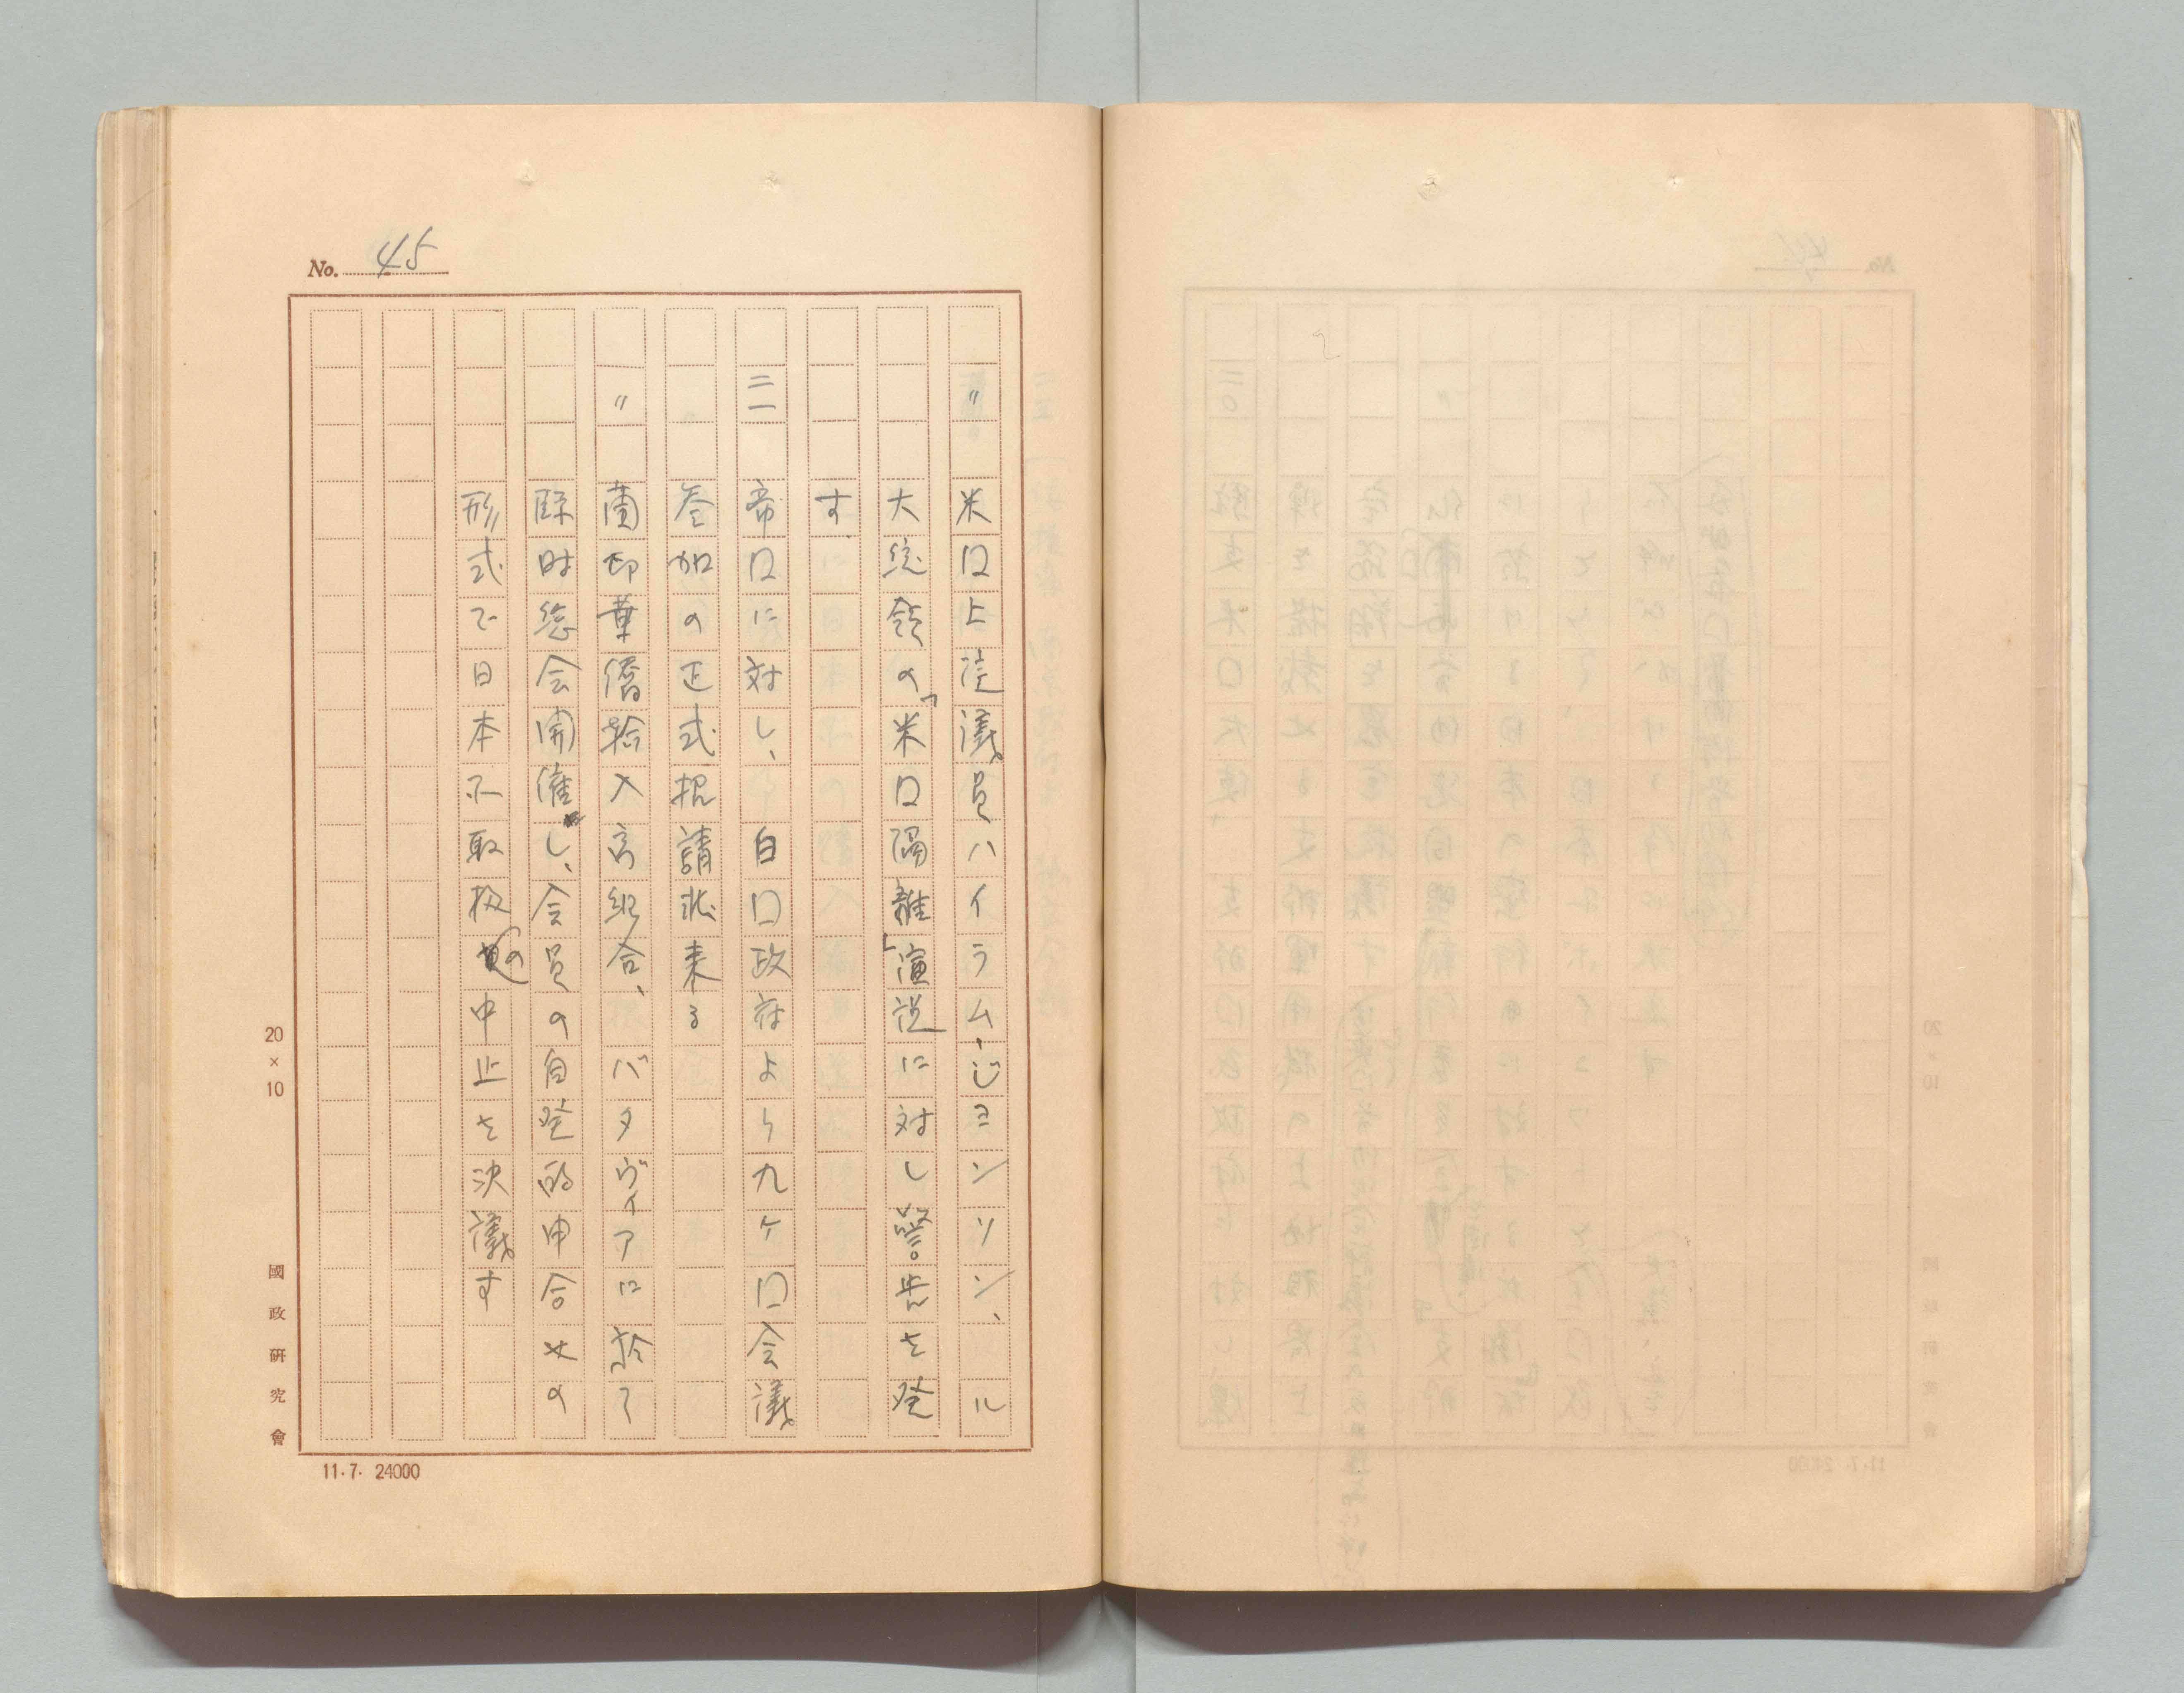 No. 45
〃 米口上院議員ハイラム・ジヨンソン、ル
大総領の「米口隔離」演説に対し警告を発
す.
二一 帝口に対し、白口政府より九ケ口会議
参加の正式招請状来る
〃 蘭印華僑輸入商組合、バタヴイアに於て
臨時総会開催し、会員の自発的申合せの
形式で日本不取扱の中止を決議す
20×10
國政研究會
11.7. 24000